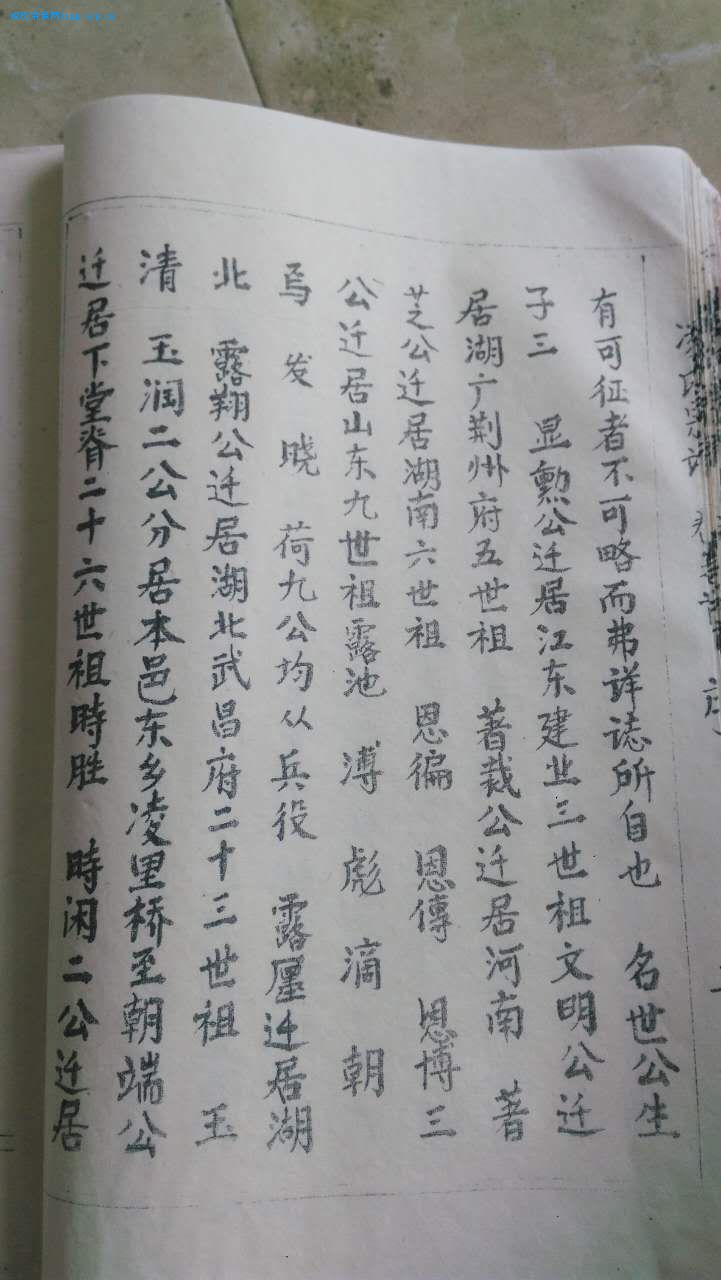 凌氏宗谱
有可征者不可略而弗详誌所自也 名世公生
子三 显勲公迁居江东建业三世祖文明公迁
居湖广荆州府五世祖 著裁公迁居河南 著
芝公迁居湖南六世祖 恩徧 恩傳 恩博三
公迁居山东九世祖露池 溥 彪 滴 朝
焉 发 晓 荷九公均从兵役 露 迁居湖
北 露翔公迁居湖北武昌府二十三世祖 玉
清 玉润二公分居本邑东乡凌里桥至朝端公
迁居下堂脊二十六世祖時胜 時闲二公迁居